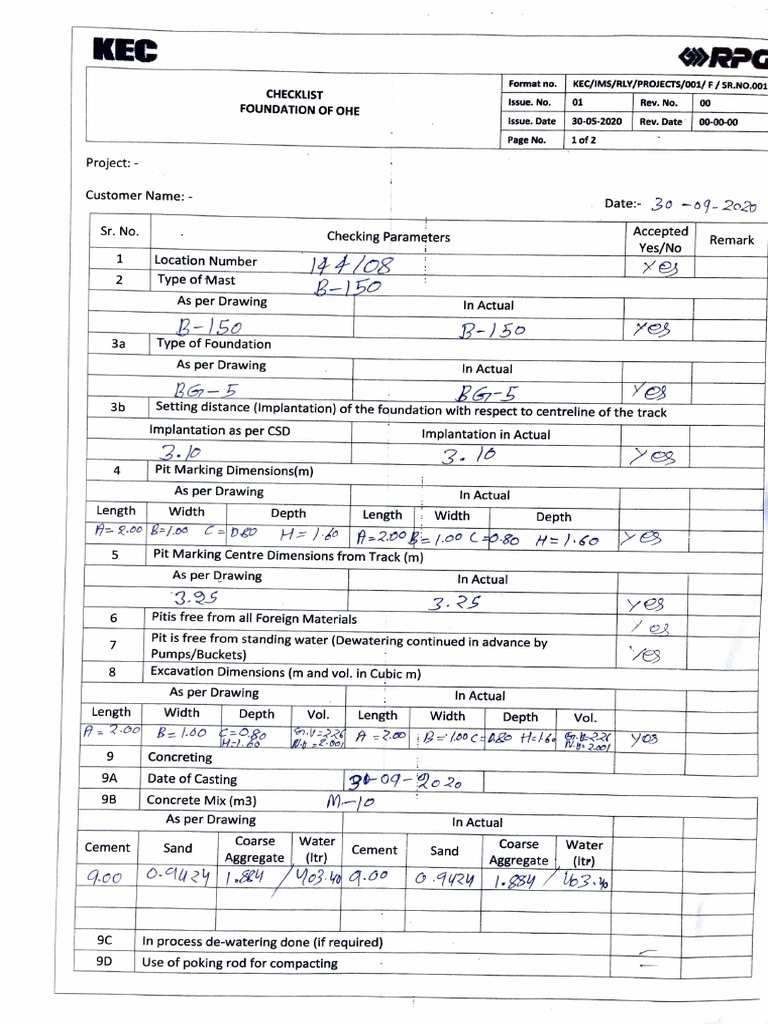 KEC
RPG
CHECKLIST
FOUNDATION OF OHE
Format no. KEC/IMS/RLY/PROJECTS/001/ F / SR.NO.001
Issue. No. 01 Rev. No. 00
Issue. Date 30-05-2020 Rev. Date 00-00-00
Page No. 1 of 2
Project: -
Customer Name: -
Date:- 30-09-2020
Sr. No. Checking Parameters Accepted Yes/No Remark
1 Location Number 144/08 Yes
2 Type of Mast B-150
As per Drawing In Actual
B-150 B-150 Yes
3a Type of Foundation
As per Drawing In Actual
BG-5 BG-5 Yes
3b Setting distance (Implantation) of the foundation with respect to centreline of the track
Implantation as per CSD Implantation in Actual
3.10 3.10 Yes
4 Pit Marking Dimensions(m)
As per Drawing In Actual
Length Width Depth Length Width Depth
A=2.00 B=1.00 C=0.80 H=1.60 A=2.00 B=1.00 C=0.80 H=1.60 Yes
5 Pit Marking Centre Dimensions from Track (m)
As per Drawing In Actual
3.25 3.25 Yes
6 Pitis free from all Foreign Materials Yes
7 Pit is free from standing water (Dewatering continued in advance by
Pumps/Buckets) Yes
8 Excavation Dimensions (m and vol. in Cubic m)
As per Drawing In Actual
Length Width Depth Vol. Length Width Depth Vol.
A=2.00 B=1.00 C=0.80 H=1.60 A=2.00 B=1.00 C=0.80 H=1.60 Yes
9 Concreting
9A Date of Casting 30-09-2020
9B Concrete Mix (m3) M-10
As per Drawing In Actual
Cement Sand Coarse Aggregate Water (ltr) Cement Sand Coarse Aggregate Water (ltr)
9.00 0.9424 1.884 403.40 9.00 0.9424 1.884
9C In process de-watering done (if required) -
9D Use of poking rod for compacting -